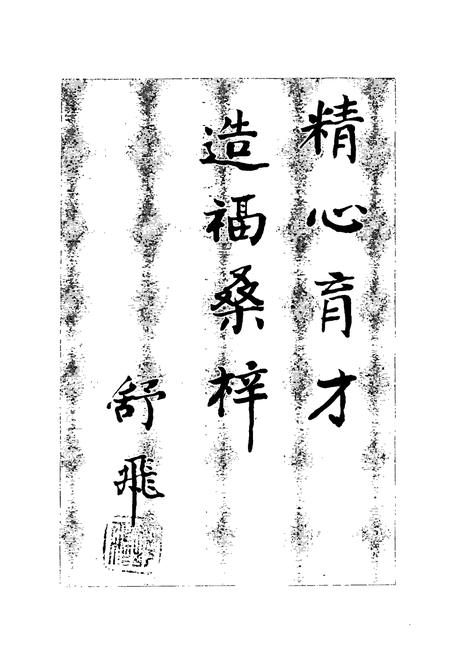 精心育才
造福桑梓
舒飛